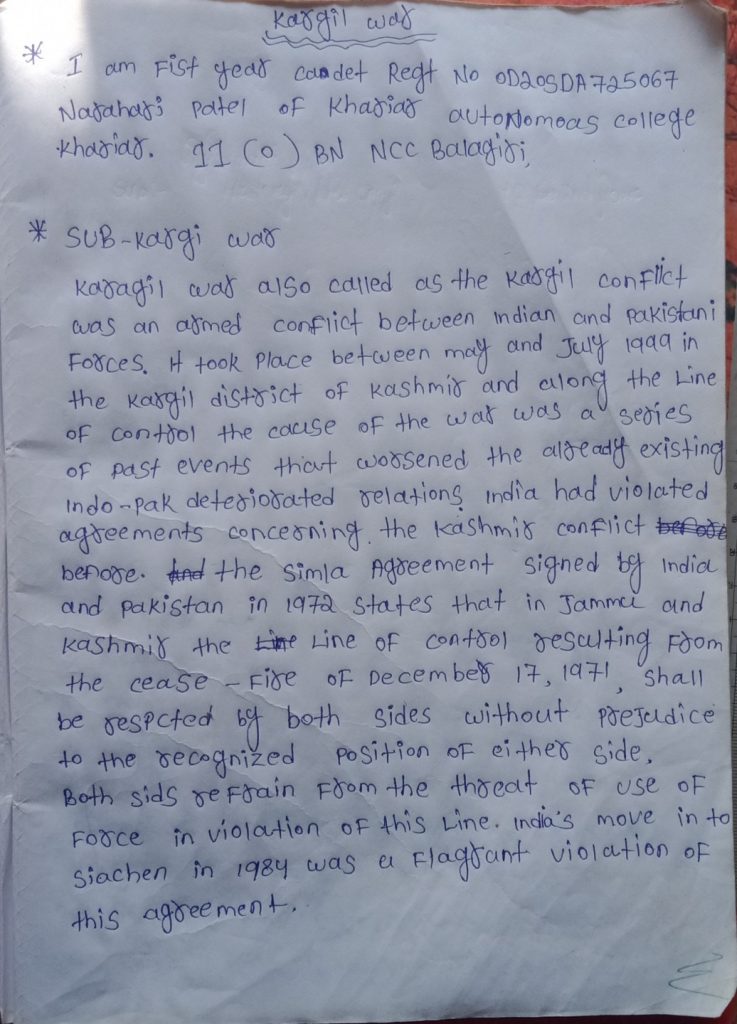 Kargil war
* I am Fist year candet Regt No OD20SDA725067
Narahari Patel of Khariar autonomoas college
Khariar. 11 (O) BN NCC Balagiri,
* SUB-Kargi war
Karagil war also called as the Kargil conflict
was an armed conflict between indian and pakistani
Forces. It took Place between may and July 1999 in
the Kargil district of Kashmir and along the Line
of control the cause of the war was a series
of past events that worsened the already existing
Indo-Pak deteriorated relations India had violated
agreements concerning. the Kashmir conflict before
before. And the Simla Agreement signed by India
and pakistan in 1972 States that in Jammu and
Kashmir the Line Line of control resulting From
the cease-Fire of December 17, 1971, Shall
be respcted by both sides without prejudice
to the recognized position of either side.
Both sids refrain From the threat of use of
Force in violation of this Line. India's move in to
Siachen in 1984 was a Flagrant violation of
this agreement.